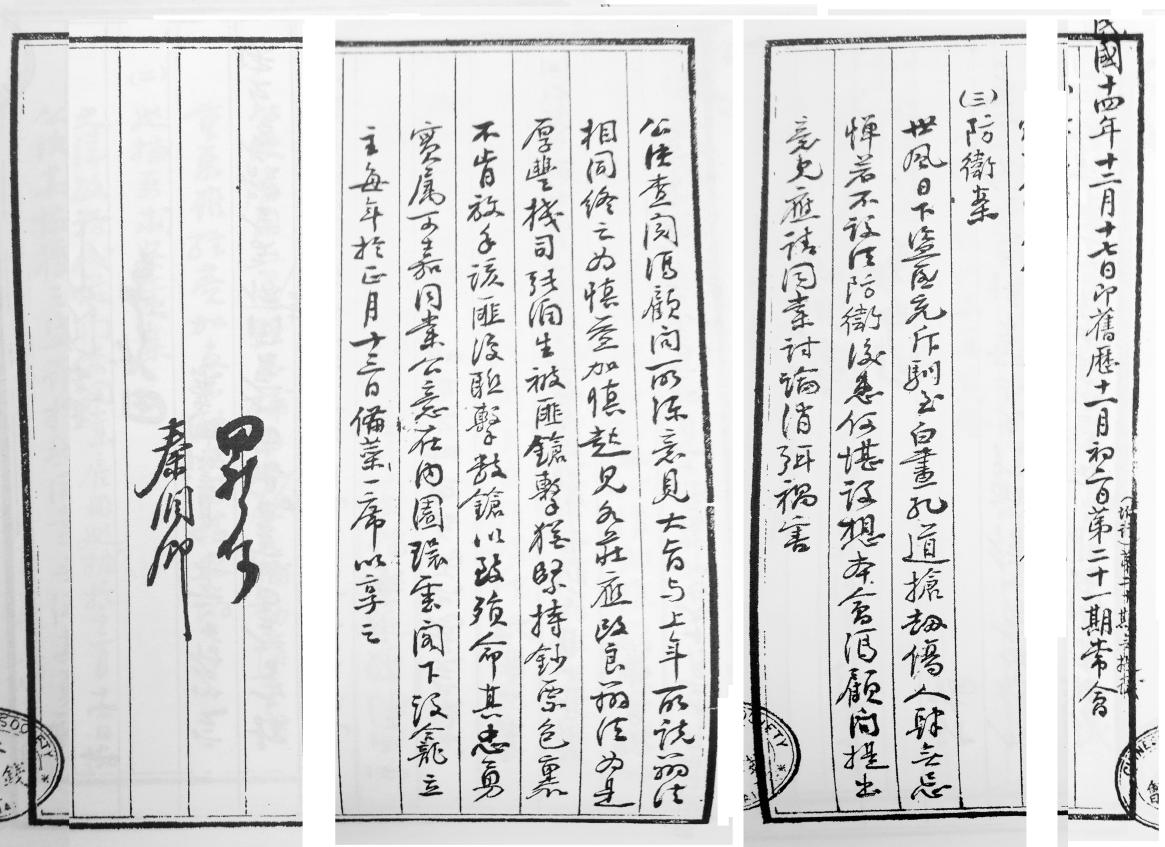 民國十四年十二月十七日即舊歷十一月初二日第二十一期常會
(三)防衛案
世風日下盜匪充斥馴至白晝孔道搶劫傷人肆無忌
憚若不設法防衛後患何堪設想本會馮顧問提出
意見應請同業討論消弭禍害
公決查閱馮顧問所條意見大旨与上年所說辦法
相同終之為慎益加慎起見各莊應改良辦法為是
厚豐棧司張润生被匪鎗擊猶緊持鈔票包裹
不肯放手該匪復取擊數鎗以致殞命其忠勇
實属可嘉同業公意在內園環雲閣下設龕立
主每年於正月十三日備菜一席以享之
田祈原
秦潤卿
SOCIETY
錢